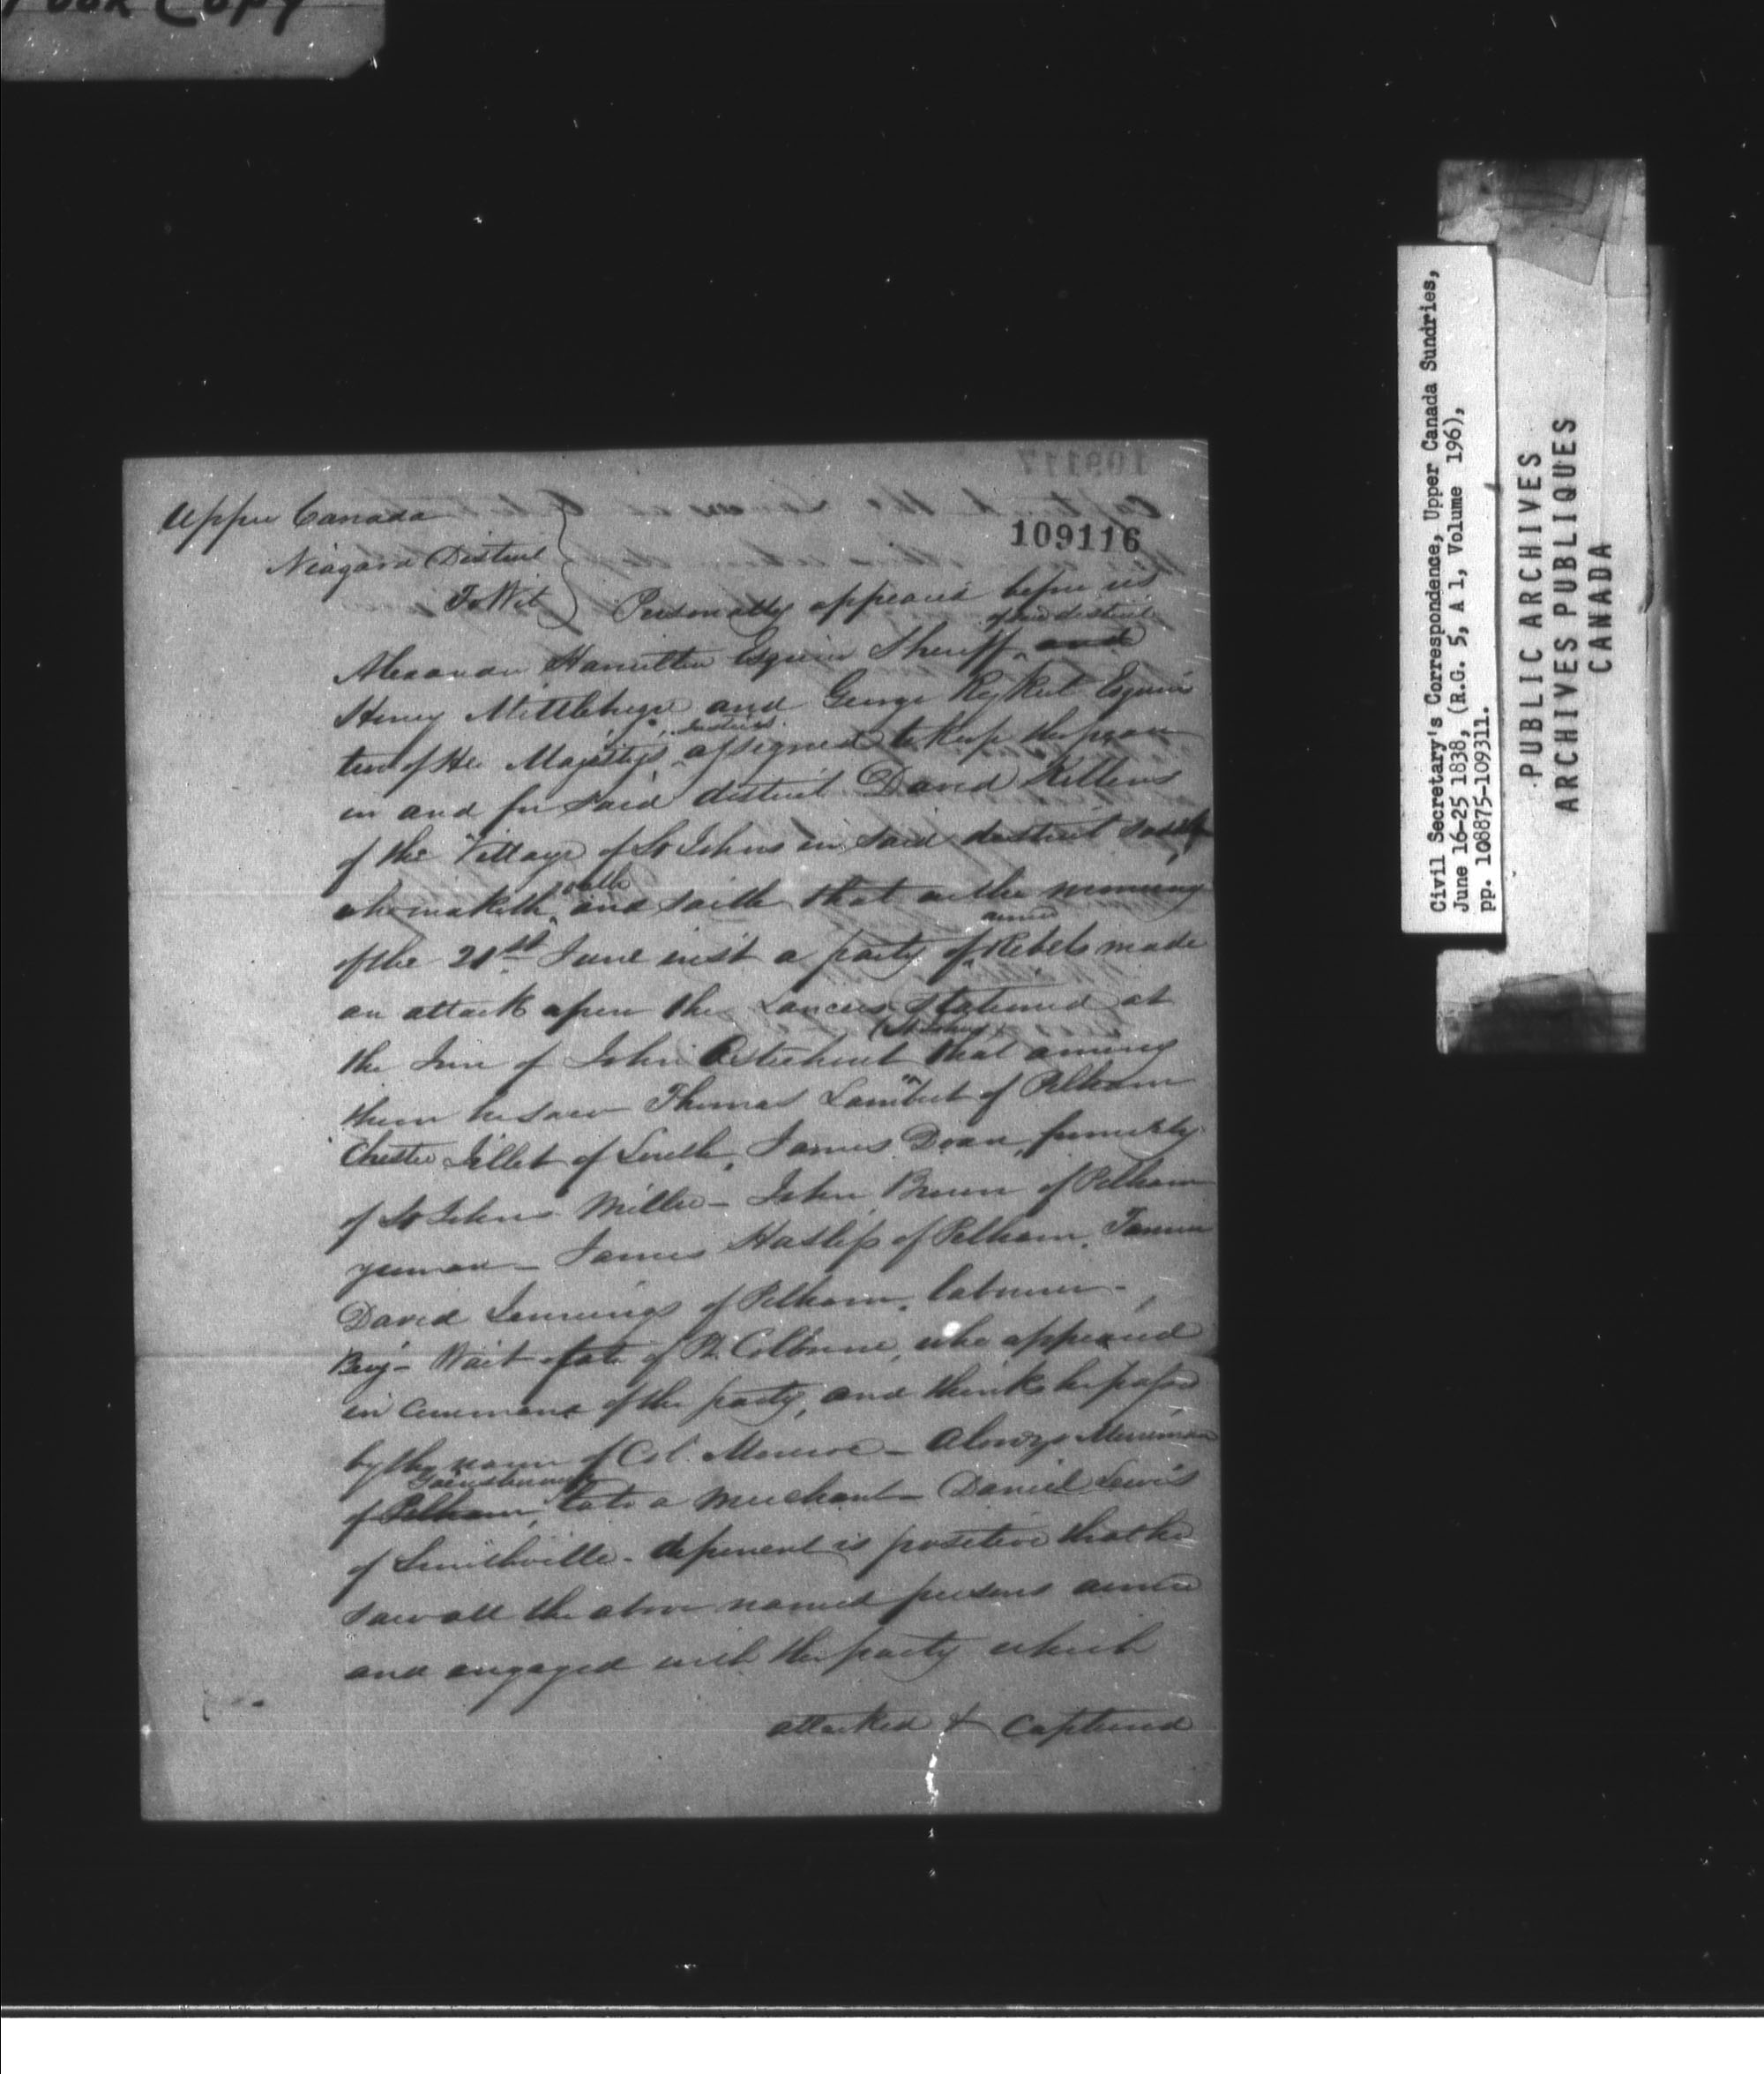 Book Copy
109117
109116
Upper Canada
Niagara District
To Wit } Personally appeared before us
of said district
Alexander Hamilton Esquire Sheriff and
Henry Mittleberger and George Rykert Esquires
Justices
two of Her Majestys assigned to keep the peace
in and for said district David Killens
of the Village of St Johns in said district
oath
who maketh and saith that on the morning
armed
of the 21st June inst a party of Rebels made
an attack upon the Lancers stationed at
(St Johns)
the Inn of John that among
them he saw Thomas Lambert of Pelham
Chester Jillet of Louth, James Doan, formerly
of St Johns Miller - John Brown of Pelham
yeoman - James Haslip of Pelham, Tanner
David Jennings of Pelham, labourer -
Benj - Wait late of Pt. Colborne, who appeared
in command of the party, and thinks he passed
by the name of Col. Monroe - Alonzo Merriman
Gainsborough
of Pelham, late a merchant - Daniel Lewis
of Smithville - deponent is positive that he
saw all the above named persons armed
and engaged with the party which
attacked & Captured
Civil Secretary's Correspondence, Upper Canada Sundries,
June 16-25 1838, (R.G. 5, A 1, Volume 196),
pp. 108875-109311.
PUBLIC ARCHIVES
ARCHIVES PUBLIQUES
CANADA